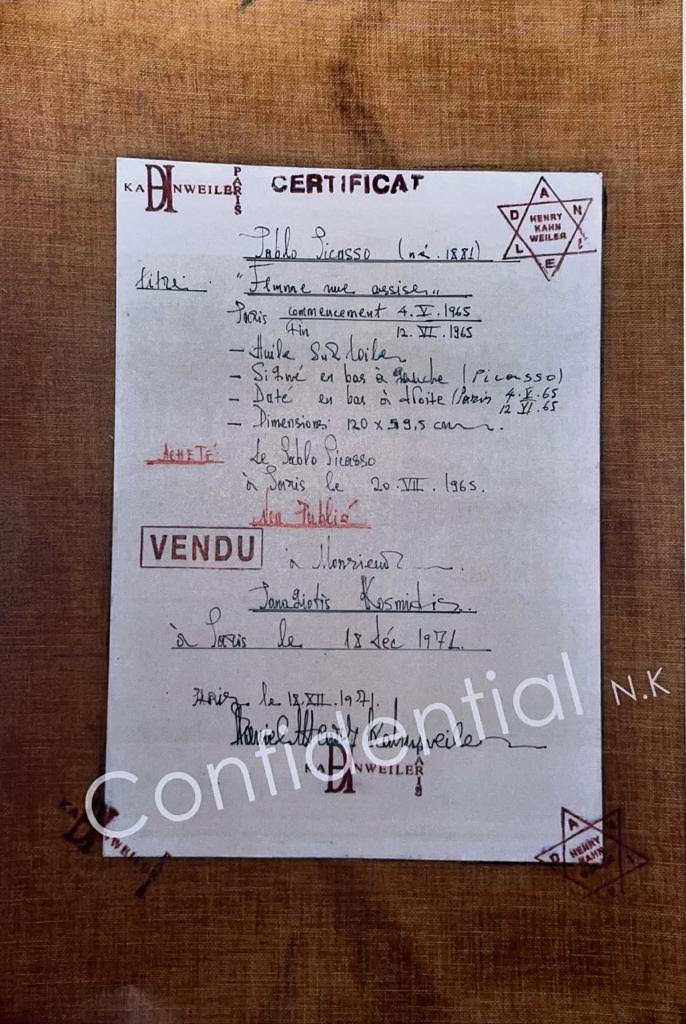 KADHNWEILER PARIS
CERTIFICAT
DANIEL
HENRY
KAHN
WEILER
Pablo Picasso (né. 1881)
titre
"Femme nue assise"
Paris commencement 4.V.1965
fin 12.VI.1965
- Huile sur toile
- Signé en bas à gauche (Picasso)
- Daté en bas à droite (Paris 4.V.65
12 VI.65
- Dimensions: 120 x 59,5 cm
ACHETÉ
de Pablo Picasso
à Paris le 20.VII.1965.
Non Publié
VENDU
à Monsieur
Panagiotis Kosmidis
à Paris le 18 déc 1971.
Paris le 18.XII.1971.
Daniel Henry Kahnweiler
KADHNWEILER PARIS
Confidential N.K
KADHNWEILER PARIS
HENRY
KAHN